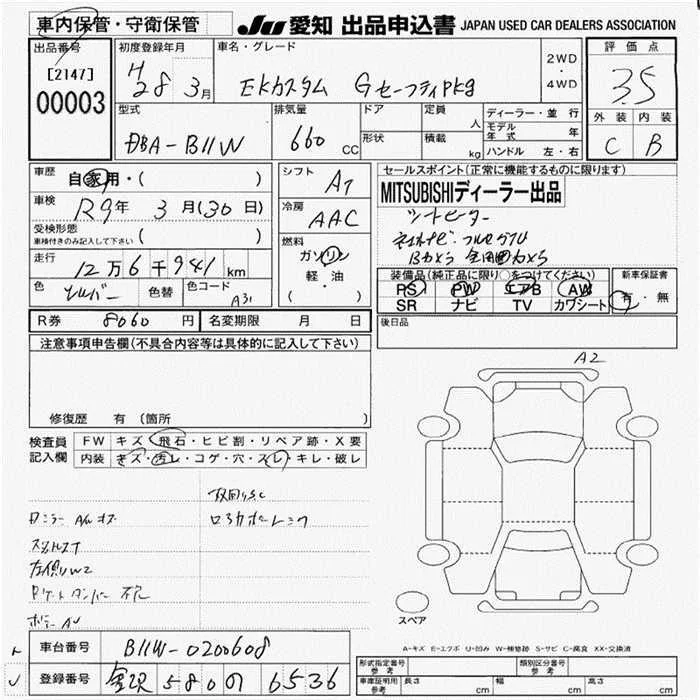 車内保管・守衛保管
JU 愛知 出品申込書 JAPAN USED CAR DEALERS ASSOCIATION
出品番号
[2147]
00003
初度登録年月
H28 3月
車名・グレード
EKカスタム GセーフティPkg
2WD
・
4WD
評価点
3.5
外装 内装
C B
型式
DBA-B11W
排気量
660 CC
ドア
形状
定員
人
積載
kg
ディーラー・並行
モデル年式 年
ハンドル 左・右
車歴
自家用・( )
車検
R9年 3月(30日)
受検形態
車検付きのみ記入して下さい ( )
走行
12万6千941km
色 シルバー 色替 色コード A31
シフト
AT
冷房
AAC
燃料
ガソリン
軽・油
( )
セールスポイント(正常に機能するものに限ります)
MITSUBISHIディーラー出品
シートヒーター
Bカメラ 全周囲カメラ
装備品(純正品に限り○をつけてください)
PS PW エアB AW
SR ナビ TV カワシート
新車保証書
有・無
後日品
R券 8060円 名変期限 月 日
注意事項申告欄(不具合内容等は具体的に記入して下さい)
修復歴 有 (箇所
検査員
記入欄
FW キズ・飛石・ヒビ割・リペア跡・X要
内装 キズ・汚レ・コゲ・穴・スレ・キレ・破レ
A2
スペア
A-キズ E-エクボ U-凹み W-補修跡 S-サビ C-腐食 XX-交換済
車台番号 B11W-0200608
登録番号 金沢 580 の 6536
形式指定番号
参考
類別区分番号
参考
車庫証明用
参考
長さ cm 幅 cm 高さ cm